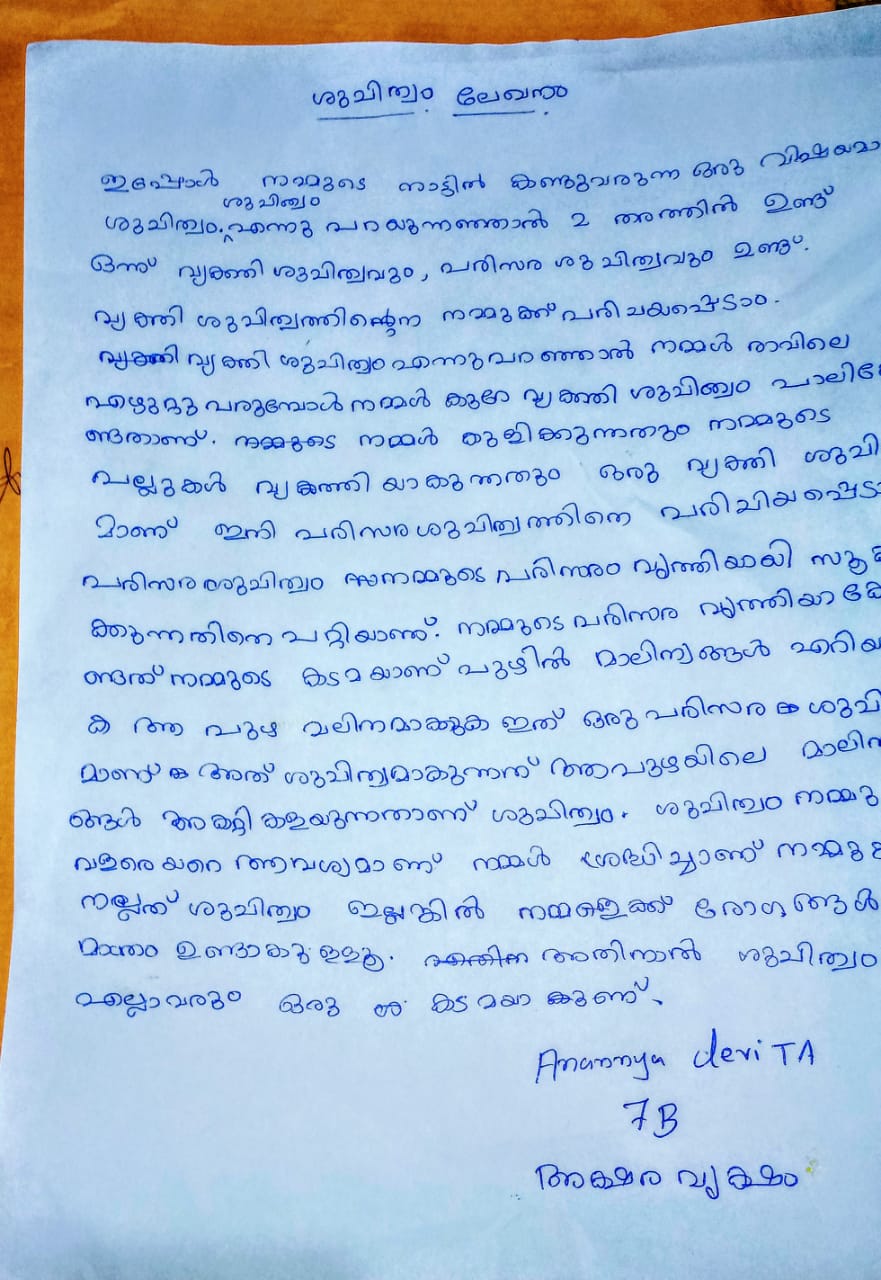 ശുചിത്വം ലേഖനം
ഇപ്പോൾ നമ്മുടെ നാട്ടിൽ കണ്ടുവരുന്ന ഒരു വിഷയമാ
ശുചിത്വം
ശുചിത്വം. എന്നു പറയുന്നഞ്ഞാൽ 2 അത്തിൽ ഉണ്ട്
ഒന്ന് വ്യക്തി ശുചിത്വവും, പരിസര ശുചിത്വവും ഉണ്ട്.
വ്യക്തി ശുചിത്വത്തിന്റെന നമ്മുക്ക് പരിചയപ്പെടാം.
വ്യക്തി വ്യക്തി ശുചിത്വം എന്നുപറഞ്ഞാൽ നമ്മൾ രാവിലെ
എഴുന്നു വരുമ്പോൾ നമ്മൾ കുറേ വ്യക്തി ശുചിത്വം പാലിക്കേ
ണ്ടതാണ്. നമ്മുടെ നമ്മൾ കുളിക്കുന്നതും നമ്മുടെ
പല്ലുകൾ വ്യക്തതിയാകുന്നതും ഒരു വ്യക്തി ശുചി
മാണ് ഇനി പരിസരശുചിത്വത്തിനെ പരിചിയപ്പെടാ
പരിസരശുചിത്വം നമ്മുടെ പരിസരം വൃത്തിയായി സൂക്ഷ
ക്കുന്നതിനെ പറ്റിയാണ്. നമ്മുടെ പരിസര വൃത്തിയാകേ
ണ്ടത് നമ്മുടെ കടമയാണ് പുഴിൽ മാലിന്യങ്ങൾ എറിയ
ക ആ പുഴ വലിനമാക്കുക ഇത് ഒരു പരിസര ശുചി
മാണ് അത് ശുചിത്വമാകുന്നത് ആപുഴയിലെ മാലിന
ങ്ങൾ അകറ്റി കളയുന്നതാണ് ശുചിത്വം. ശുചിത്വം നമ്മു
വളരെയറെ ആവശ്യമാണ് നമ്മൾ ശ്രദ്ധിച്ചാണ് നമ്മുക
നല്ലത് ശുചിത്വം ഇല്ലങ്കിൽ നമ്മളെക്ക് രോഗങ്ങൾ
മാത്രം ഉണ്ടാകു ഉള്ളൂ. അതിനാൽ ശുചിത്വം
എല്ലാവരും ഒരു കടമയാക്കുണ്.
Anannya devi TA
7B
അക്ഷര വൃക്ഷം